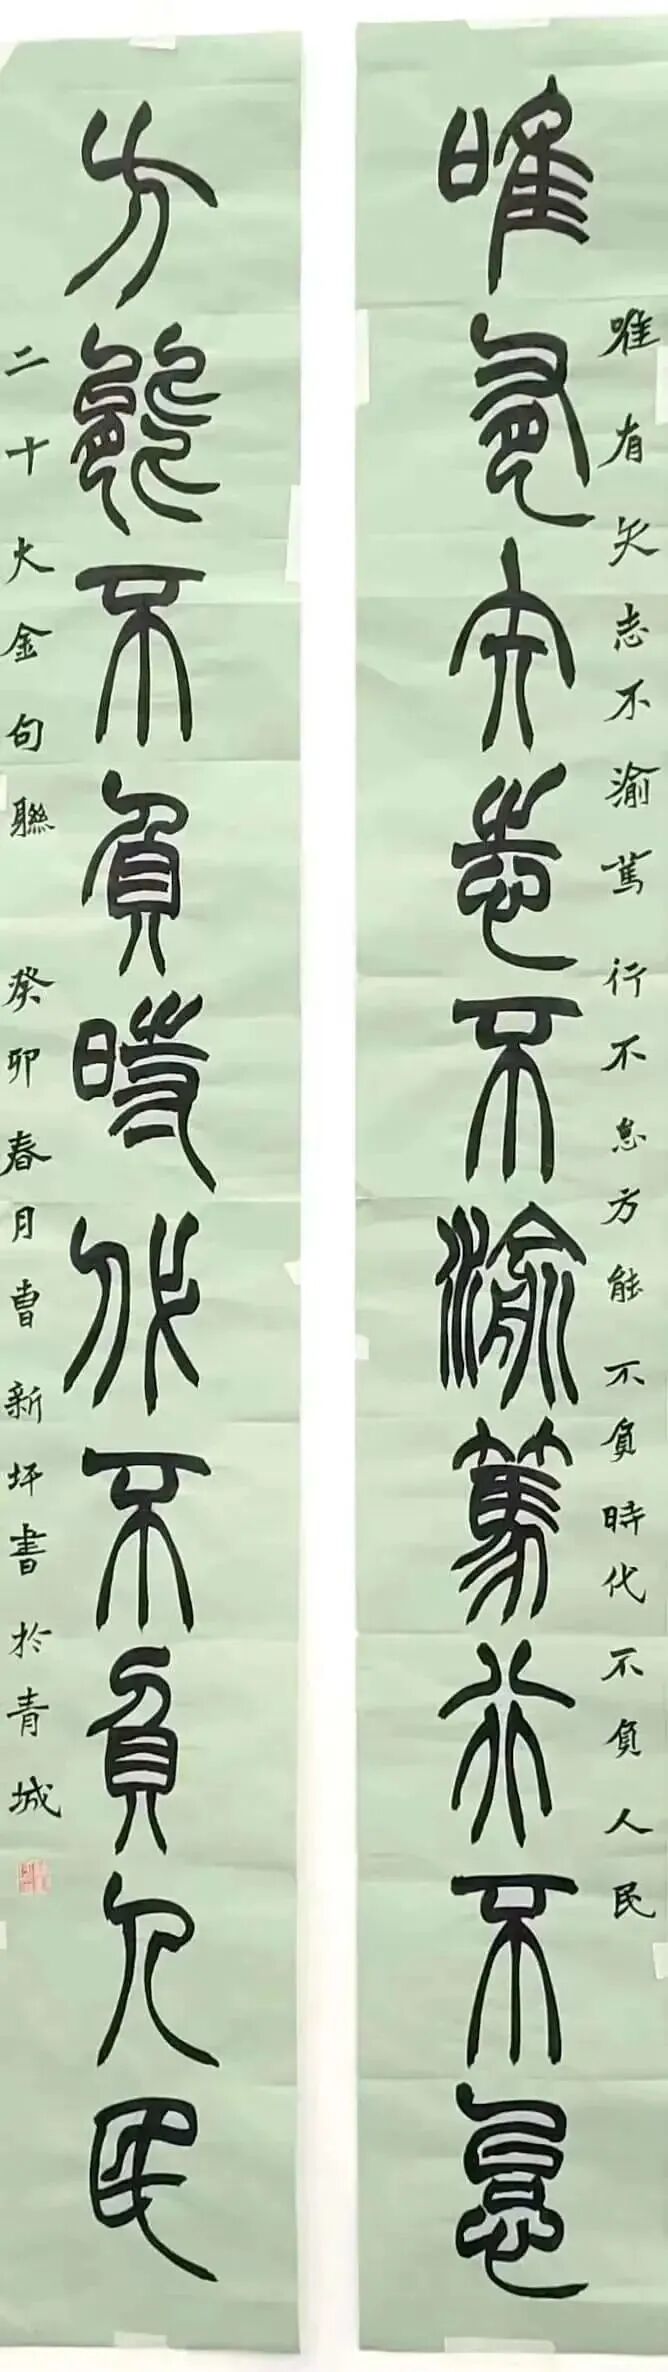 唯有矢志不渝篤行不怠方能不負時代不負人民
唯有矢志不渝篤行不怠
方能不負時代不負人民
二十大金句聯 癸卯春月曹新坪書於青城